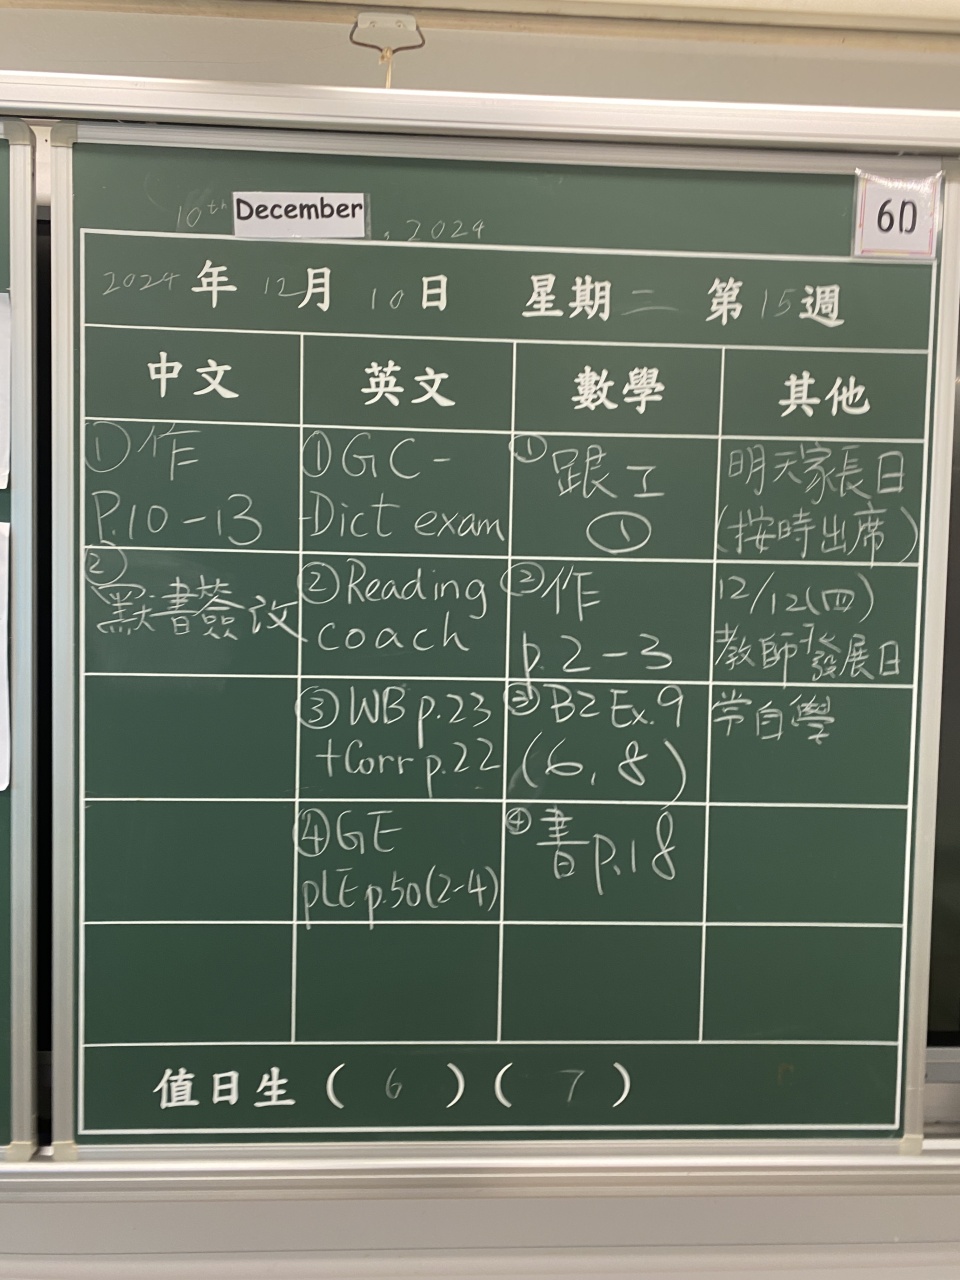 10th December, 2024
6D
2024年12月10日 星期二 第15週
中文 英文 數學 其他
①作
P.10-13
②
默書簽改
①GC-
Dict exam
②Reading
coach
③WB p.23
+Corr p.22
④GE
pLE p.50(2-4)
①跟工
①
②作
p.2-3
③B2 Ex.9
(6,8)
④書p.18
明天家長日
(按時出席)
12/12(四)
教師發展日
常自學
值日生(6)(7)